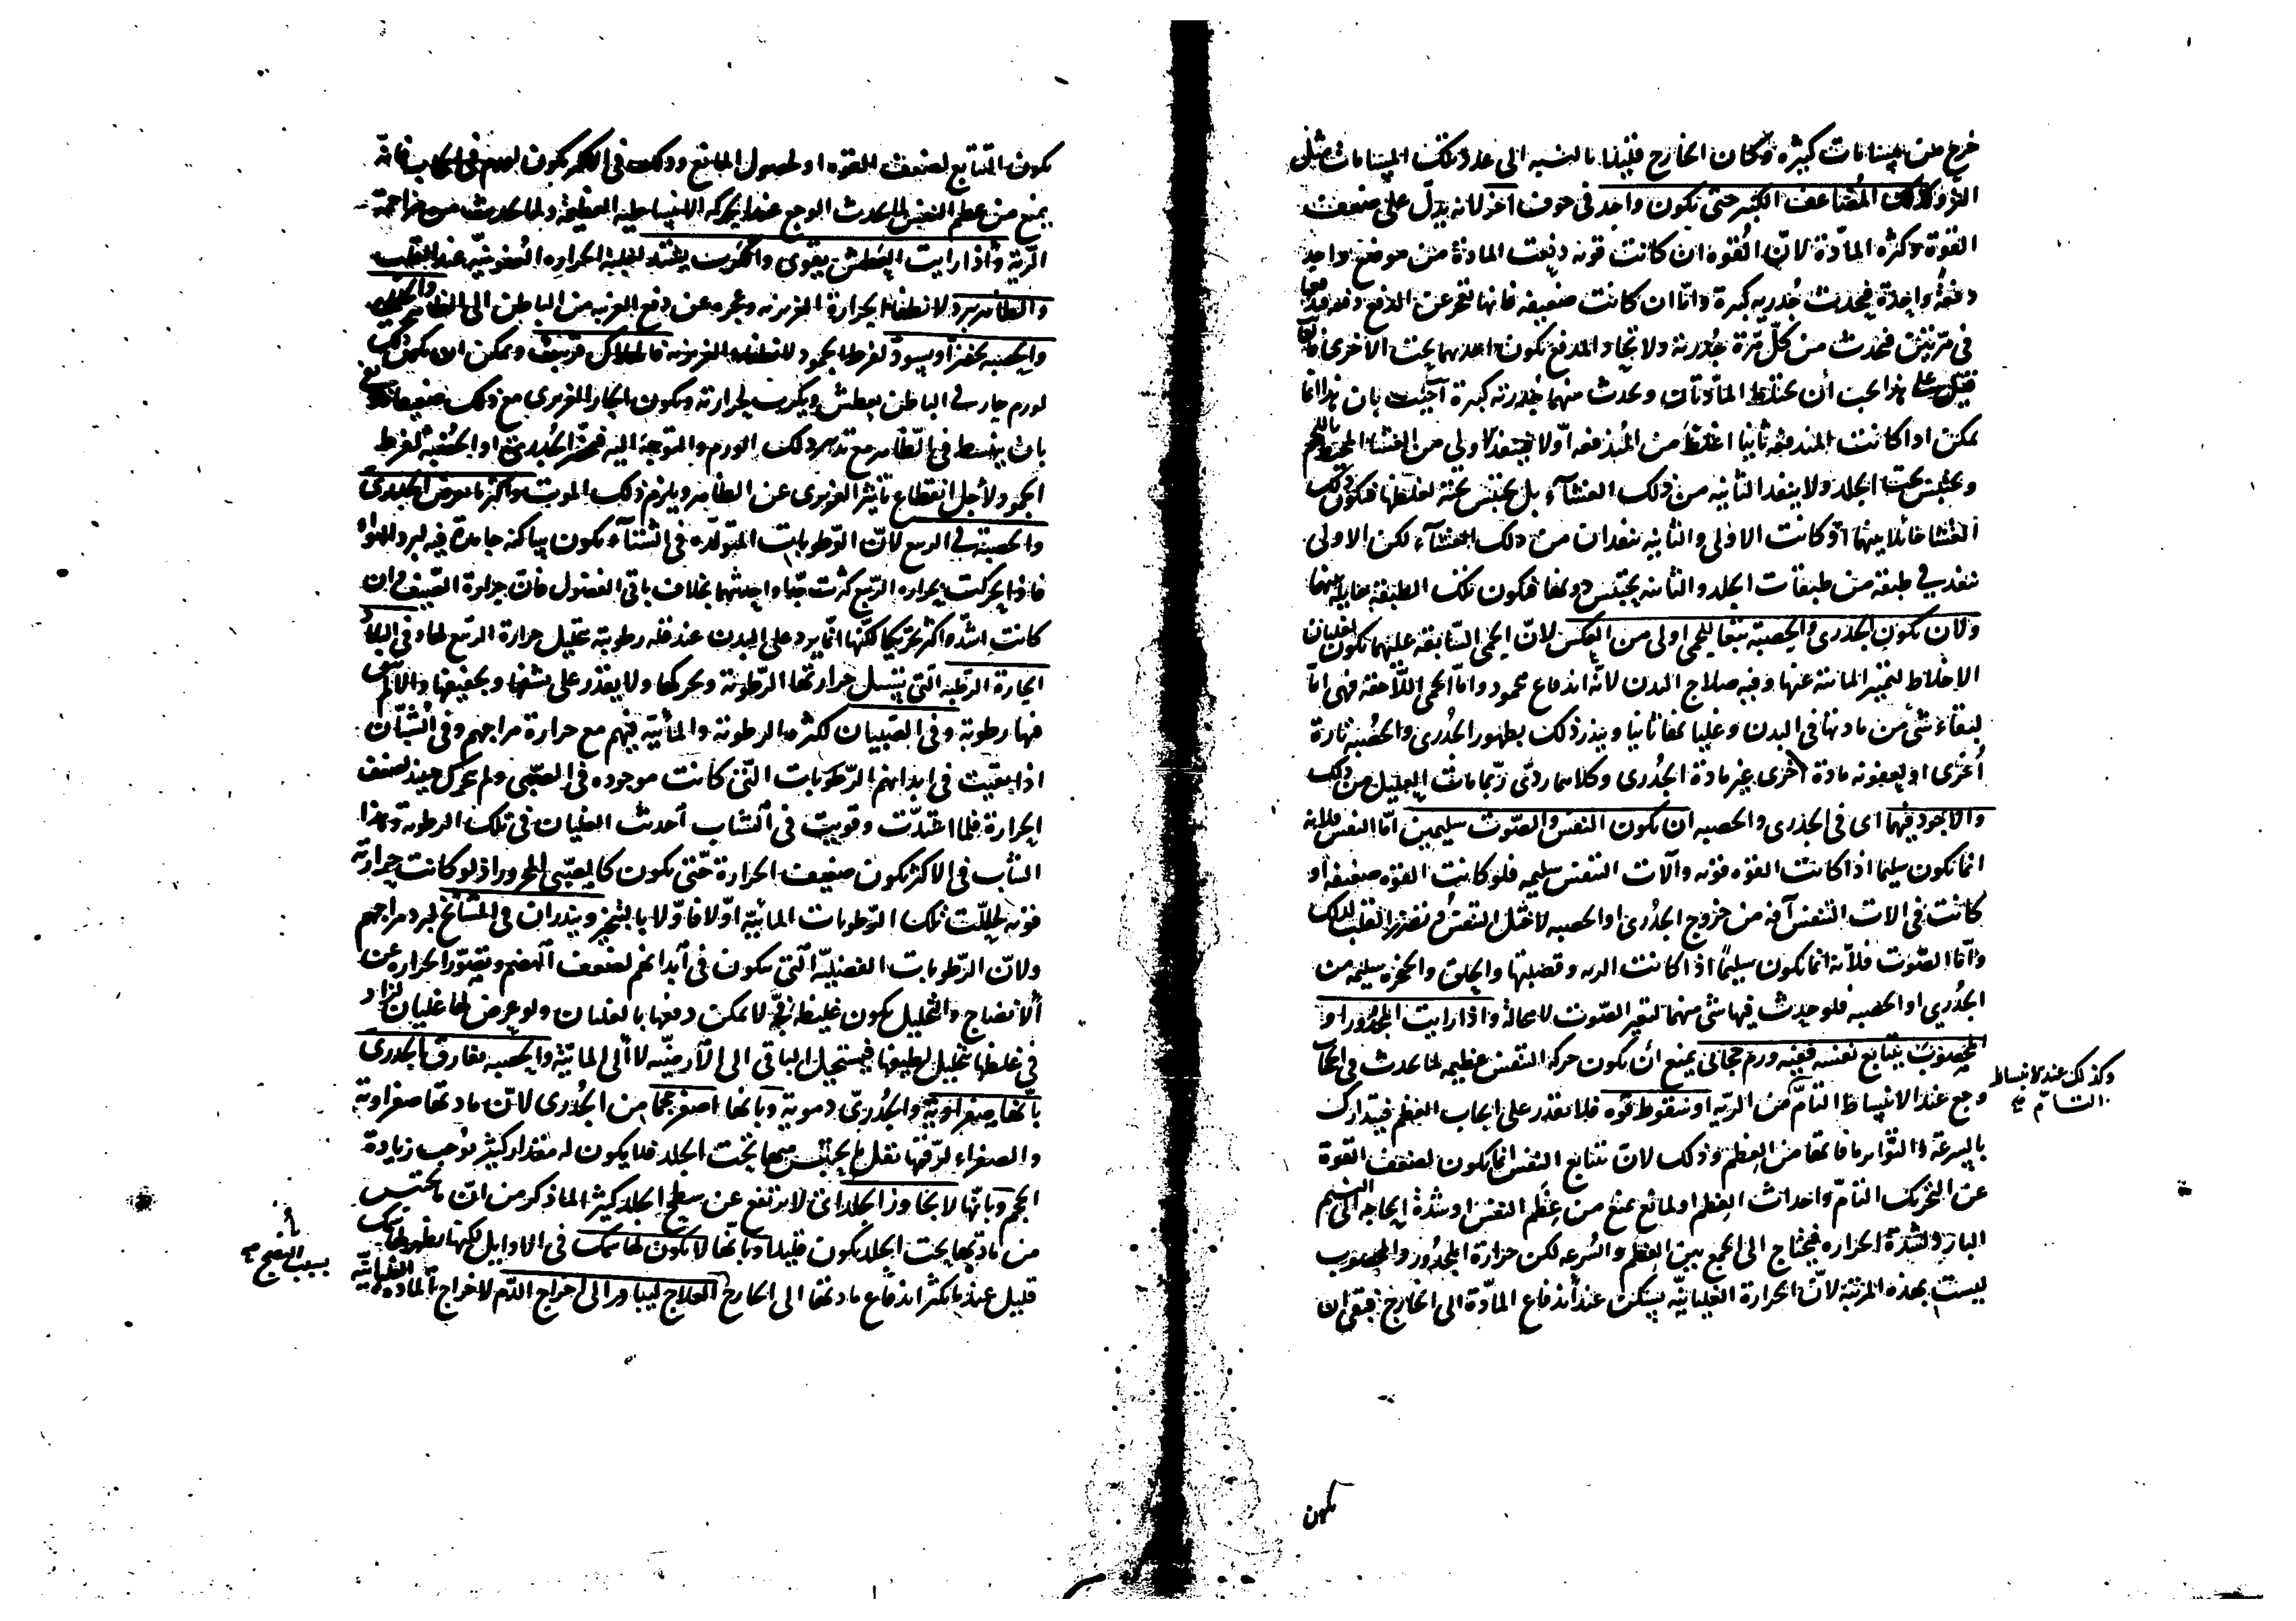 خرج من مسامات كثيره وكان الخارج قليلا بالنسبه الى عدد تلك المسامات مثل
وكذلك المضاعف الكبير حتى يكون واحد فى جوف آخر لانه يدل على ضعف
القوة وكثره المادة لانّ القوه ان كانت قويه دفعت المادة من موضع واحد
دفعة واحدة فيحدث جدريه كبيرة وامّا ان كانت ضعيفه فانها تعجز عن الدفع دفعه
فى مرّتين فيحدث من كلّ مرّة جدرية ولاتحاد المدفع يكون احديهما تحت الاخرى فان
قيل على هذا يجب أن يختلط المادّتان ويحدث منهما جدرية كبيرة أجيب بان هذا انما
يمكن اذا كانت المندفعه ثانيا اغلظ من المندفعه اوّلا فينفذ الاولى من الغشاء المحيط باللحم
ويحتبس تحت الجلد ولا ينفذ الثانيه من ذلك الغشآء بل يحتبس تحته لغلظها فيكون ذلك
الغشا حائلا بينهما او كانت الاولى والثانيه تنفذان من ذلك الغشآء لكن الاولى
تنفذ في طبقة من طبقات الجلد والثانيه يحتبس دونها فيكون تلك الطبقة حايلة بينهما
ولان يكون الجدرى والحصبة تبعا للحمى اولى من العكس لانّ الحمى السّابقة عليهما يكون لغليان
الاخلاط لتميز المائية عنها وفيه صلاح البدن لأنّه اندفاع محمود وامّا الحمى اللّاحقة فهى امّا
لبقاء شئ من مادتها فى البدن وغليانها ثانيا وينذر ذلك بظهور الجدرى والحصبة تارة
أخرى او لعفونه مادة اخرى غير مادة الجدرى وكلاهما ردى ربّما مات العليل من ذلك
والاجود فيهما اى فى الجدرى والحصبه ان يكون النفس والصّوت سليمين امّا النفس فلانه
انما يكون سليما اذا كانت القوه قويه وآلات التنفس سليمه فلو كانت القوه ضعيفه او
كانت فى الات التنفس آفه من خروج الجدرى او الحصبه لاختل التنفس وتضرر القلب لذلك
وامّا الصّوت فلأنه انما يكون سليمًا اذا كانت الريه وقصبتها والحلق والحنجره سليمه من
الجدري او الحصبه فلو حدث فيها شئ منهما لتغير الصّوت لا محالة واذا رايت المجدور او
المحصوب يتتابع نفسه ففيه ورم حجابى يمنع أن يكون حركة التنفس عظيمه لما يحدث فى الحجاب
وجع عند الانبساط التامّ من الريه او سقوط قوه فلا تقدر على ايجاب العظم فيتدارك
بالسرعة والتواتر ما فاتها من العظم وذلك لان تتابع النفس انما يكون لضعف القوة
عن التحريك التامّ واحداث العظم او لمانع يمنع من عظم النفس او شدة الحاجه الى النسيم
البارد لشدة الحراره فيحتاج الى الجمع بين العظم والسّرعه لكن حرارة المجدور والمحصوب
ليست بهذه المرتبة لانّ الحرارة الغليانيّه يسكن عند أندفاع المادّة الى الخارج فبقى ان
وكذلك عند الانبساط
التامّ
يكون
يكون التتابع لضعف القوه او لحصول المانع وذلك فى الاكثر يكون لورم فى الحجاب فانه
يمنع من عظم النفس لما يحدث الوجع عند الحركه الانبساطيه العظيمة ولما يحدث من مزاحمة
الرّية واذا رايت العطش يقوى والكرب يشتد لغلبة الحراره العفونيّه عند القلب
والظاهر يبرد لانطفاء الحرارة الغريزيه وعجزه عن دفع الغريبه من الباطن الى الظاهر
والحصبه تخضر او يسود لفرط الجمود لانطفاء الغريزيه فالهلاك قريب ويمكن ان يكون ذلك
لورم حار في الباطن يعطش ويكرب لحرارته ويكون الحار الغريزى مع ذلك ضعيفا
بان ينبسط فى الظاهر مع تدبير ذلك الورم والمتوجه اليه فيخضر الجدرى او الحصبة لفرط
الجمود ولأجل انقطاع تأثير الغريزى عن الظاهر ويلزم ذلك الموت واكثر ما يعرض الجدرى
والحصبة في الربيع لانّ الرّطوبات المتولّده فى الشتآء يكون ساكنه جامدة فيه لبرد الهواء
فاذا تحركت بحراره الرّبيع كثرت جدّا واحدثهما بخلاف باقى الفصول فان حرارة الصّيف وان
كانت اشدّ واكثر تحريكا لكنّها انما يرد على البدن عند قلة رطوبته بتحليل حرارة الربيع لها وفى البلاد
الحارة الرّطبه التى يسيل حرارتها الرّطوبة وتحركها ولا يقدر على نشفها وتجفيفها والا لم يبق
فيها رطوبة وفى الصّبيان لكثرة الرطوبة والمائيّة فيهم مع حرارة مزاجهم وفى الشبّان
اذا بقيت فى ابدانهم الرّطوبات الّتى كانت موجوده فى الصّبى ولم تتحرك حينئذ لضعف
الحرارة فلما اشتدّت وقويت فى الشاب أحدثت الغليان فى تلك الرطوبة وهذا
الشاب فى الاكثر يكون ضعيف الحرارة حتى يكون كالصبّى المحرور اذ لو كانت حرارته
قويه لحللت تلك الرّطوبات المائيّه اوّلا فاوّلا بالتبخير ويندران فى المشايخ لبرد مزاجهم
ولانّ الرّطوبات الفضليّه الّتى يكون فى أبدانهم لضعف الهضم وقصور الحراره عن
ألانضاج والتحليل يكون غليظه لا يمكن دفعها بالغليان ولو عرض لها غليان لزاد
فى غلظها بتحليل لطيفها فيستحيل الباقى الى الأرضيّه لا الى المائيّة والحصبه تفارق الجدرى
بأنّها صفراوية والجدرىّ دموية وبانّها اصغر حجما من الجدرى لانّ مادتها صفراوية
والصفراء لرقّتها تقل ما يحتبس منها تحت الجلد فلا يكون له مقدار كثير توجب زيادة
الحجم وبانّها لا تجاوز الجلد أى لا يرتفع عن سطح الجلد كثير الما ذكر من انّ ما يحتبس
من مادتها تحت الجلد يكون قليلا وبانّها لا يكون لها سمك فى الاوايل لكنها يظهر لها سمك
قليل عند ما يكثر اندفاع مادتها الى الخارج العلاج ليبادر الى اخراج الدّم لاخراج المادة الغليانيّه
بسبب النضج